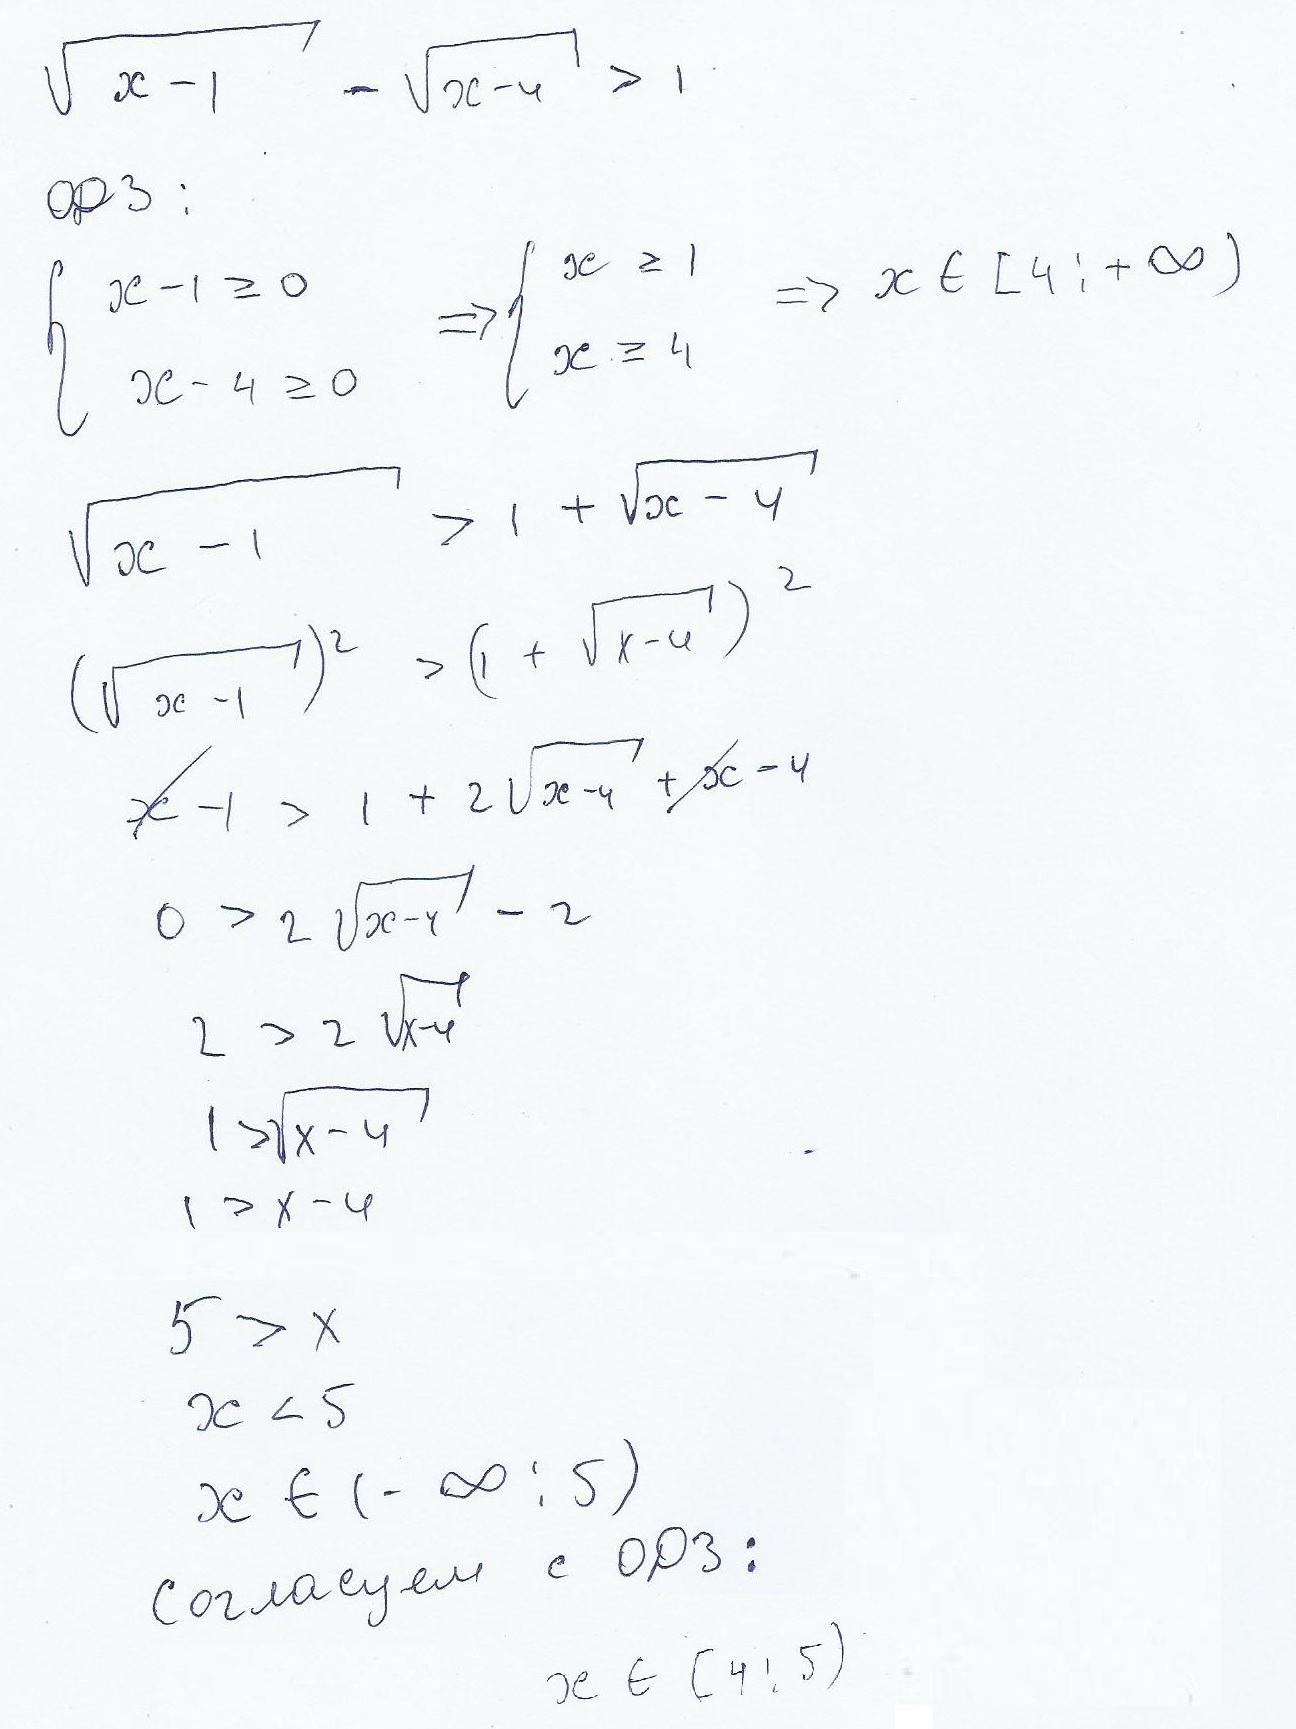 √(x-1) - √(x-4) > 1
ОДЗ:
{ x-1 ≥ 0 => { x ≥ 1 => x ∈ [4; +∞)
{ x-4 ≥ 0 { x ≥ 4
√(x-1) > 1 + √(x-4)
(√(x-1))² > (1 + √(x-4))²
x - 1 > 1 + 2√(x-4) + x - 4
0 > 2√(x-4) - 2
2 > 2√(x-4)
1 > √(x-4)
1 > x-4
5 > x
x < 5
x ∈ (-∞; 5)
согласуем с ОДЗ:
x ∈ [4; 5)